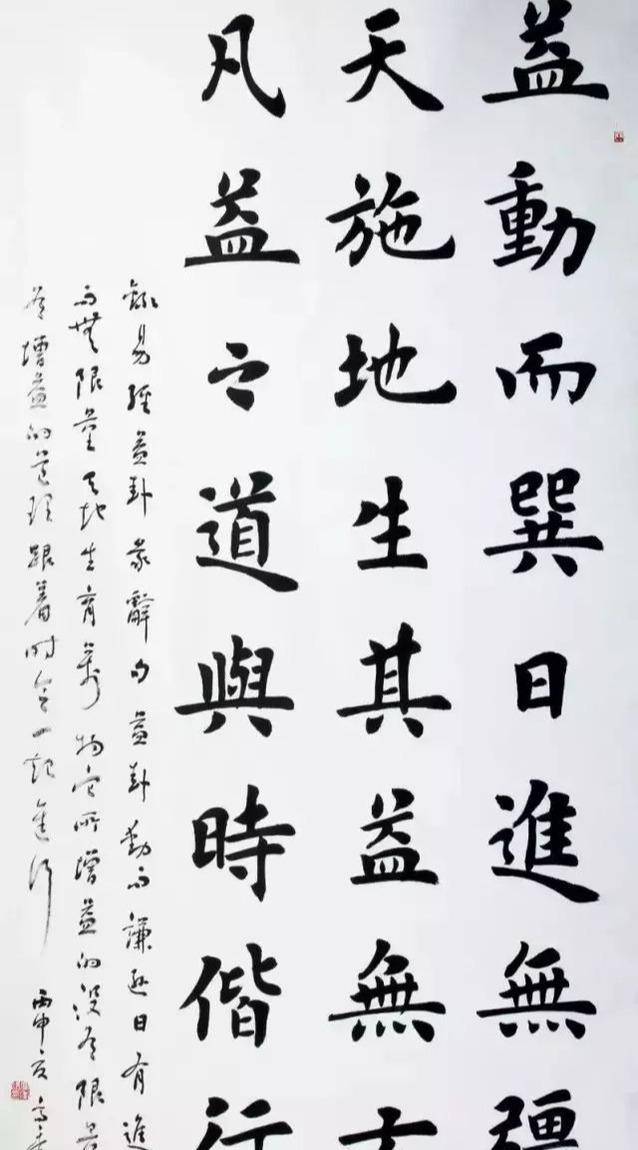 益動而巽日進無疆
天施地生其益無方
凡益之道與時偕行
錄易經益卦彖辭句益卦動而謙遜日有進
而無限量天地生育萬物它所增益的沒有限量
增益的道理跟着時令一起進行 丙申夏